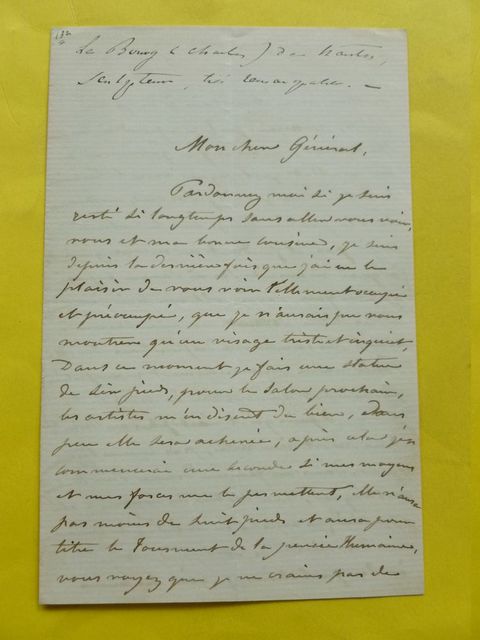 Le Bourg (Charles) de Nantes,
Sculpteur, très remarquable. —
Mon cher Général,
Pardonnez moi si je suis
resté si longtemps sans aller vous voir,
vous et ma bonne cousine, je suis
depuis la dernière fois que j'ai eu le
plaisir de vous voir tellement occupé
et préoccupé, que je n'aurais pu vous
montrer qu'un visage triste et inquiet,
Dans ce moment je fais une statue
de six pieds, pour le Salon prochain,
les artistes m'en disent du bien, Dans
peu elle sera achevée, après cela j'en
commencerai une seconde si mes moyens
et mes forces me le permettent, Elle n'aura
pas moins de huit pieds et aura pour
titre le Tourment de la pensée Humaine,
vous voyez que je ne crains pas de